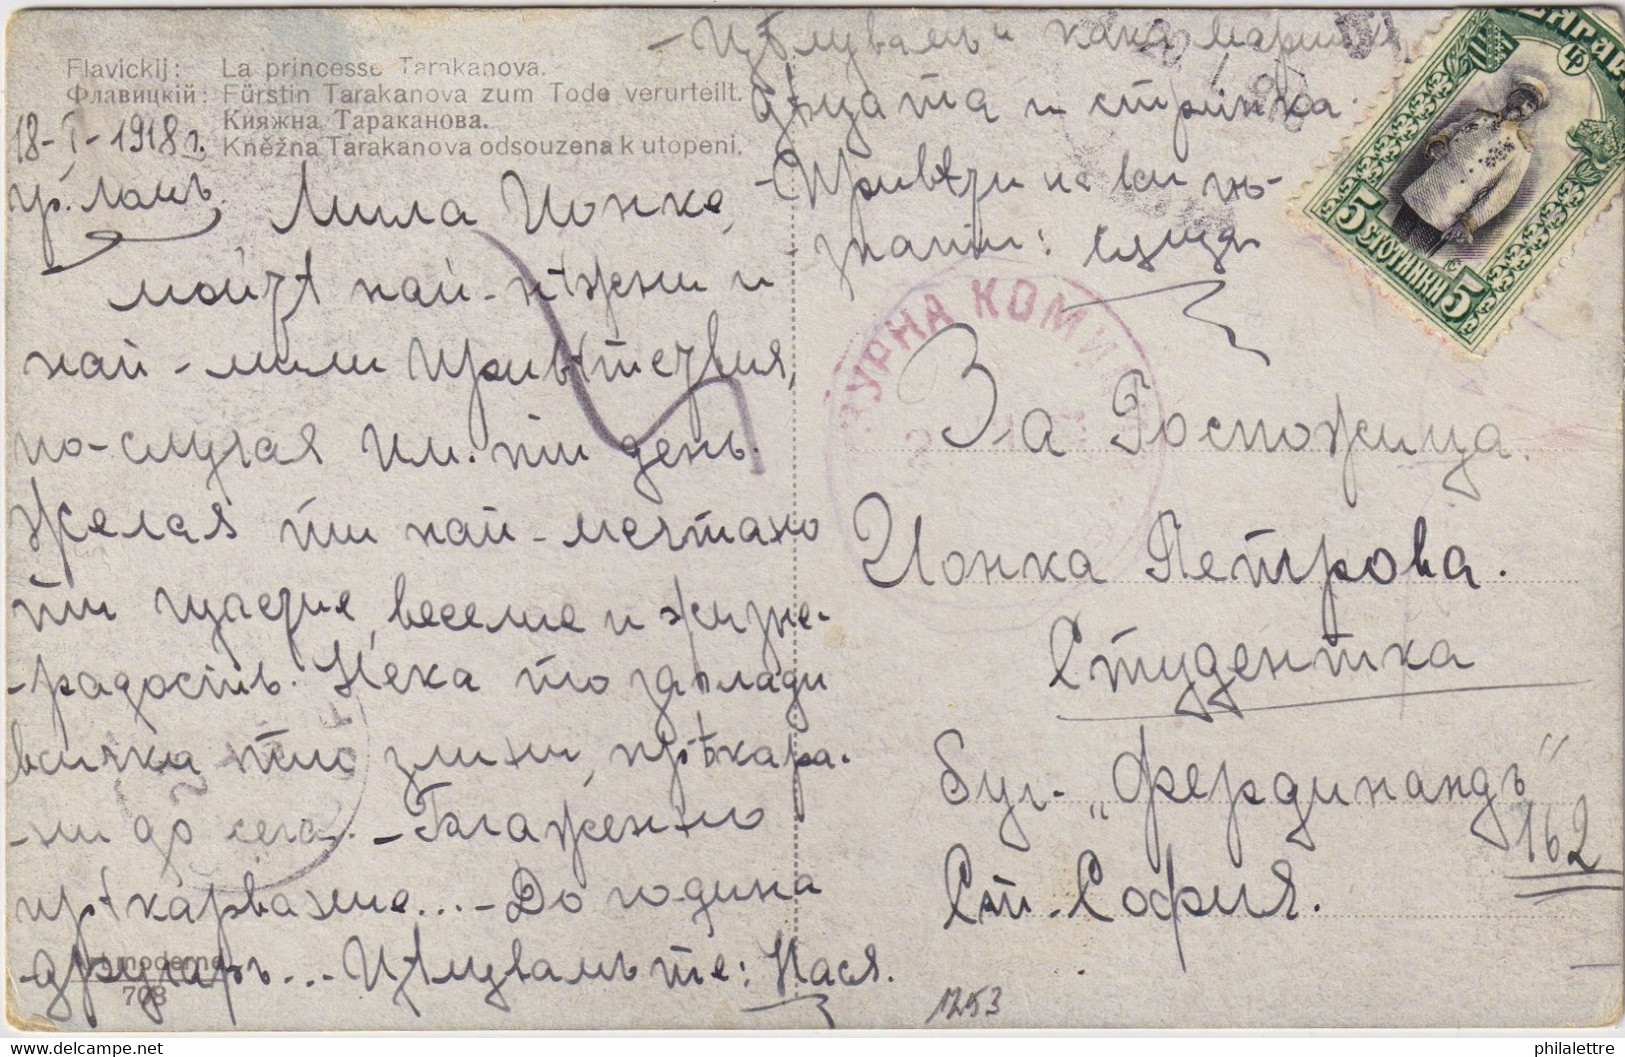 Flavickij: La princesse Tarakanova.
Флавицкій: Fürstin Tarakanova zum Tode verurteilt.
Княжна Тараканова.
Kněžna Tarakanova odsouzena k utopeni.
18-I-1918 г.
гр. Ломъ
Мила Ионке,
мойтѣ най-нѣжни и
най-мили привѣтствия,
по-случая им. ти день.
Желая ти най-мечтано
ти щастие, веселие и жизне-
-радость. Нека то заглади
всичка тио злини, прѣкара-
ни до сега. -
прѣкарване... - До година
другарь... - Цѣлувамъ те: Нася.
- Цѣлувамъ и кака Мария
дѣцата и стринка.
- Привѣти на ви поз-
нати: сѫщя
БЪЛГАРИЯ
5 СТОТИНКИ 5
УРНА КОМИ
За Госпожица
Ионка Петрова.
Студентка
Бул. „Фердинандъ“
162
Ст. София.
Art moderne
708
1253
delcampe.net
philalettre